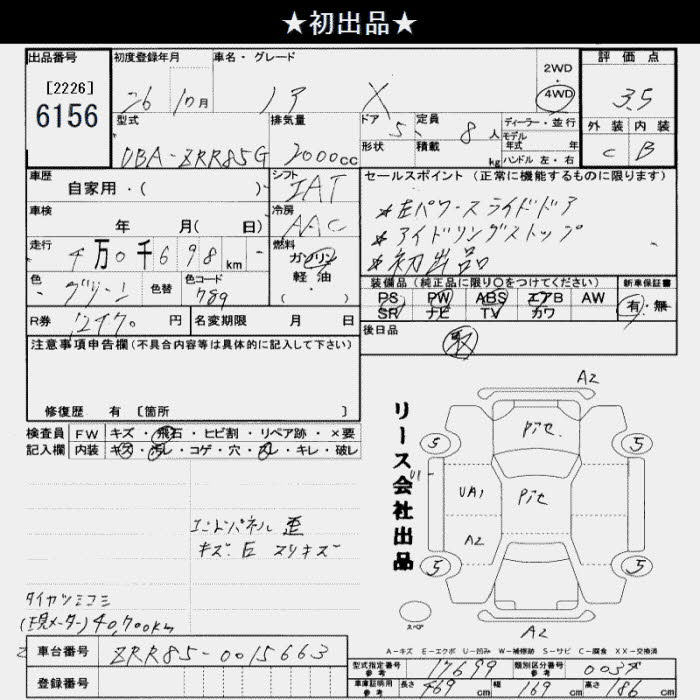 ★初出品★
出品番号 初度登録年月 車名・グレード 2WD・4WD 評価点
[2226]
6156
26 10月 ノア X 3.5
型式 排気量 ドア 5 定員 8人 ディーラー・並行 外装 内装
DBA-ZRR85G 2000cc 形状 積載 kg モデル年式 年 C B
ハンドル 左・右
車歴 シフト セールスポイント (正常に機能するものに限ります)
自家用・( ) IAT
車検 冷房 ★左パワースライドドア
年 月( 日) AAC ★アイドリングストップ
走行 4万0千698km 燃料 ガソリン ★初出品
軽油
・( )
色 グリーン 色替 色コード 789 装備品(純正品に限り○をつけてください) 新車保証書
PS PW ABS エアB AW 有・無
SR ナビ TV カワ
R券 12470円 名変期限 月 日 後日品 取
注意事項申告欄(不具合内容等は具体的に記入して下さい)
修復歴 有 [箇所 ]
検査員 FW キズ・飛石・ヒビ割・リペア跡・×要
記入欄 内装 キズ・汚レ・コゲ・穴・スレ・キレ・破レ
リース会社出品
A2
5 Pit. 5
U1
UA1 Pit
A2
5 5
スペア
A2
エンドパネル 歪
キズ
スリキズ
タイヤツミコミ
(現メーター) 40,700km
A-キズ E-エクボ U-凹み W-補修跡 S-サビ C-腐食 XX-交換済
車台番号 ZRR85-0015663
登録番号
型式指定番号 参考 17699 類別区分番号 参考
車庫証明用 参考 長さ 469cm 幅 169cm 高さ 186cm